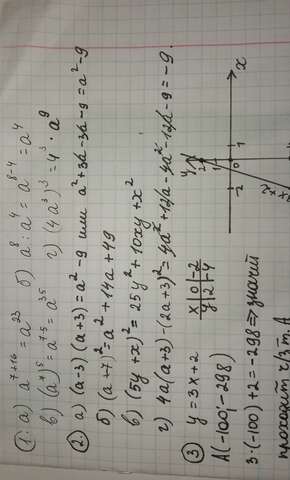 1: а) a^{7+16} = a^{23} б) a^8 : a^4 = a^{8-4} = a^4
в) (a^7)^5 = a^{7·5} = a^{35} г) (4a^3)^3 = 4^3 · a^9
2. а) (a-3)(a+3) = a^2 - 9 или a^2+3a-3a-9 = a^2-9
б) (a+7)^2 = a^2 + 14a + 49
в) (5y + x)^2 = 25y^2 + 10xy + x^2
г) 4a(a+3) - (2a+3)^2 = 4a^2 + 12a - 4a^2 - 12a - 9 = -9.
3 y = 3x + 2
x | 0 | -2
y | 2 | -4
y
2
1
-2 0 1 x
A(-100; -298)
3·(-100) + 2 = -298 => значит
проходит ч/з т. A